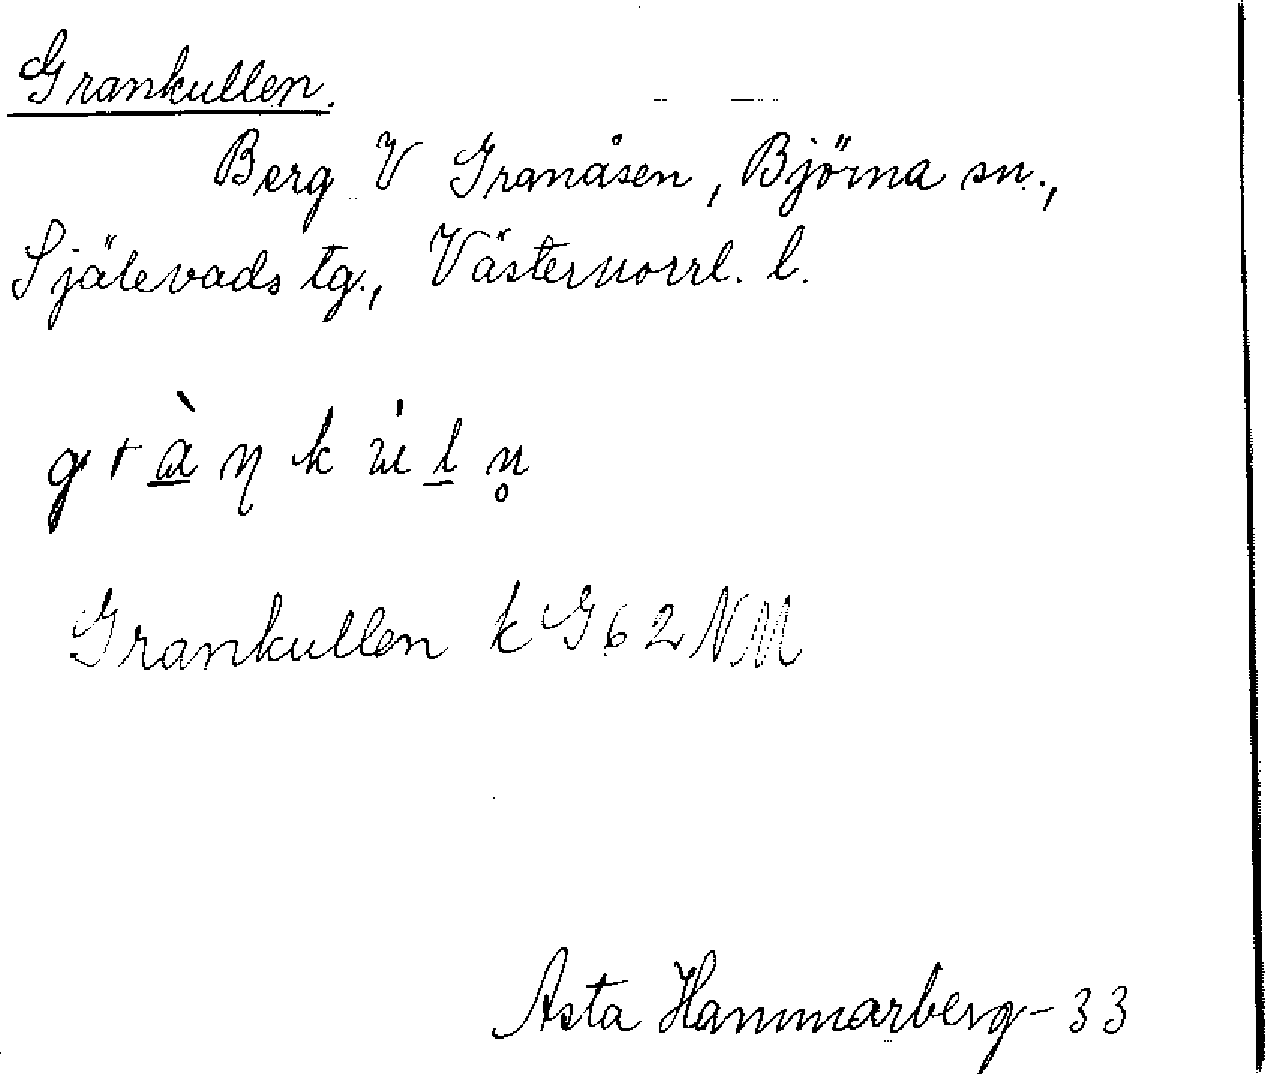 Grankullen.
Berg V Granåsen, Björna sn.,
Själevads tg., Västernorrl. l.
gràŋkùln̥
Grankullen k G62NM
Asta Hammarberg-33